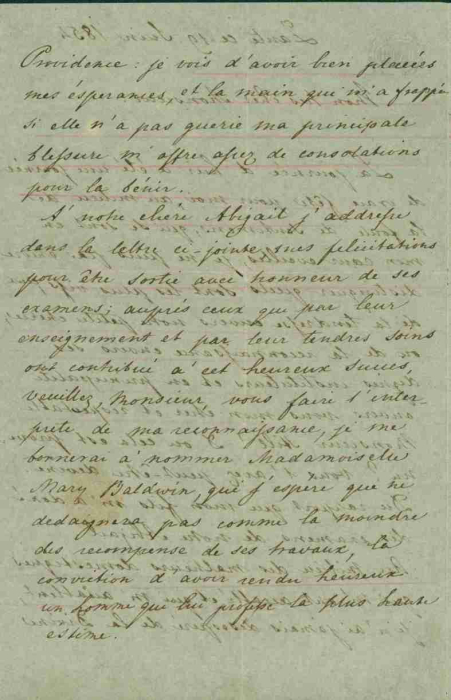 Providence: je vois d'avoir bien placées
mes ésperances, et la main qui m'a frappé
si elle n'a pas guerie ma principale
blessure m'offre assez de consolations
pour la bénir.
A' notre chère Abigail j'addresse
dans la lettre ci-jointe mes felicitations
pour être sortie avec honneur de ses
examens; auprés ceux que par leur
enseignement et par leur tendres soins
ont contribué à cet heureux succes,
veuillez, Monsieur, vous faire l'inter-
prete de ma reconnaissance, je me
bornerai à nommer Madamoiselle
Mary Baldwin, que j'espere que ne
dedaignera pas comme la moindre
des recompense de ses travaux, la
conviction d'avoir rendu heureux
un homme que lui proffesse la plus haute
estime.